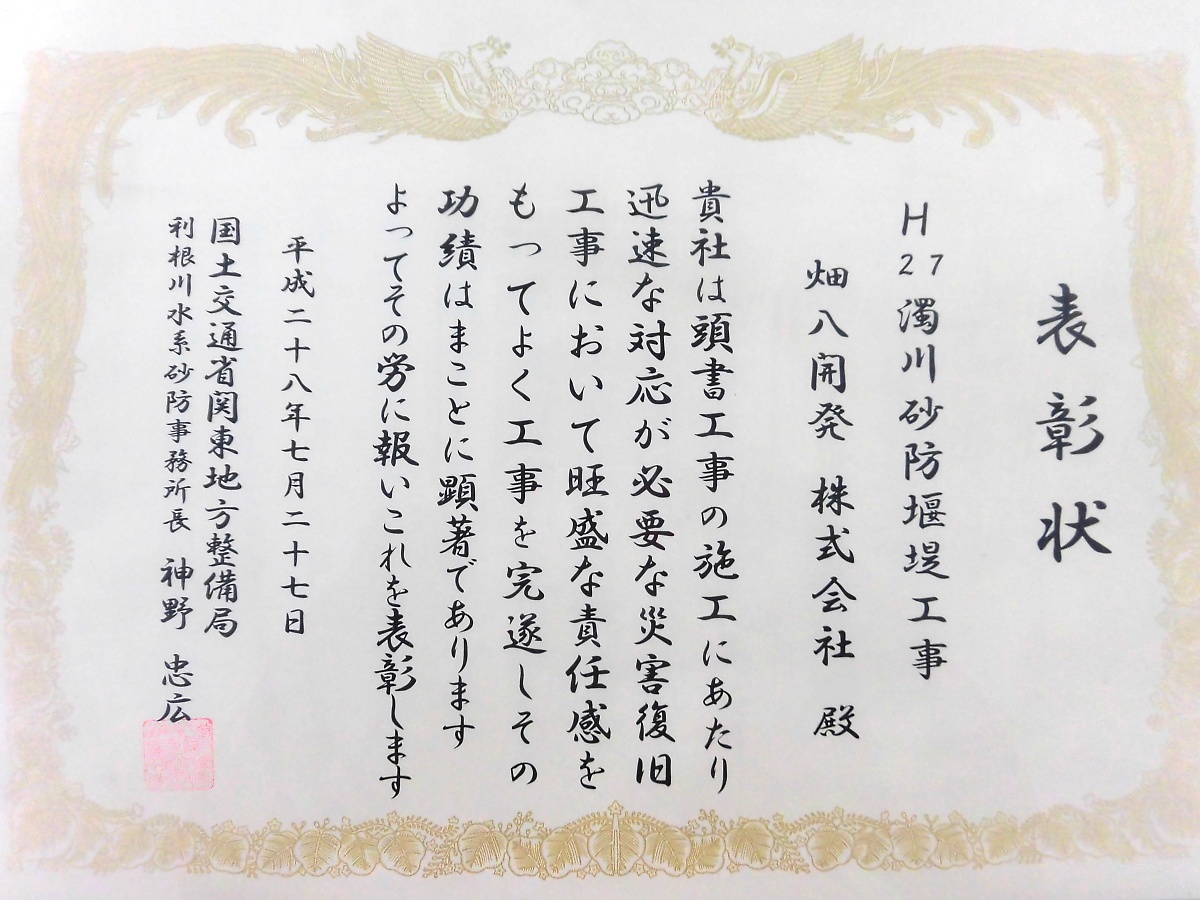 表彰状
H27濁川砂防堰堤工事
畑八開発 株式会社 殿
貴社は頭書工事の施工にあたり
迅速な対応が必要な災害復旧
工事において旺盛な責任感を
もってよく工事を完遂しその
功績はまことに顕著であります
よってその労に報いこれを表彰します
平成二十八年七月二十七日
国土交通省関東地方整備局
利根川水系砂防事務所長 神野 忠広